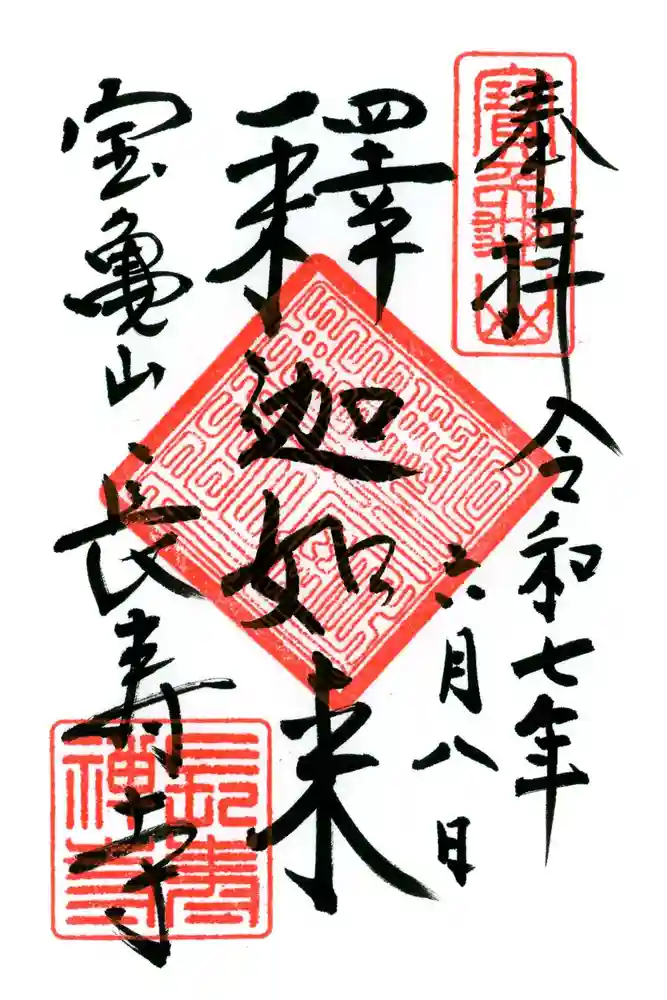 奉拝
令和七年
六月八日
釋迦如来
宝亀山
長寿寺
寶亀山
長壽
禅寺